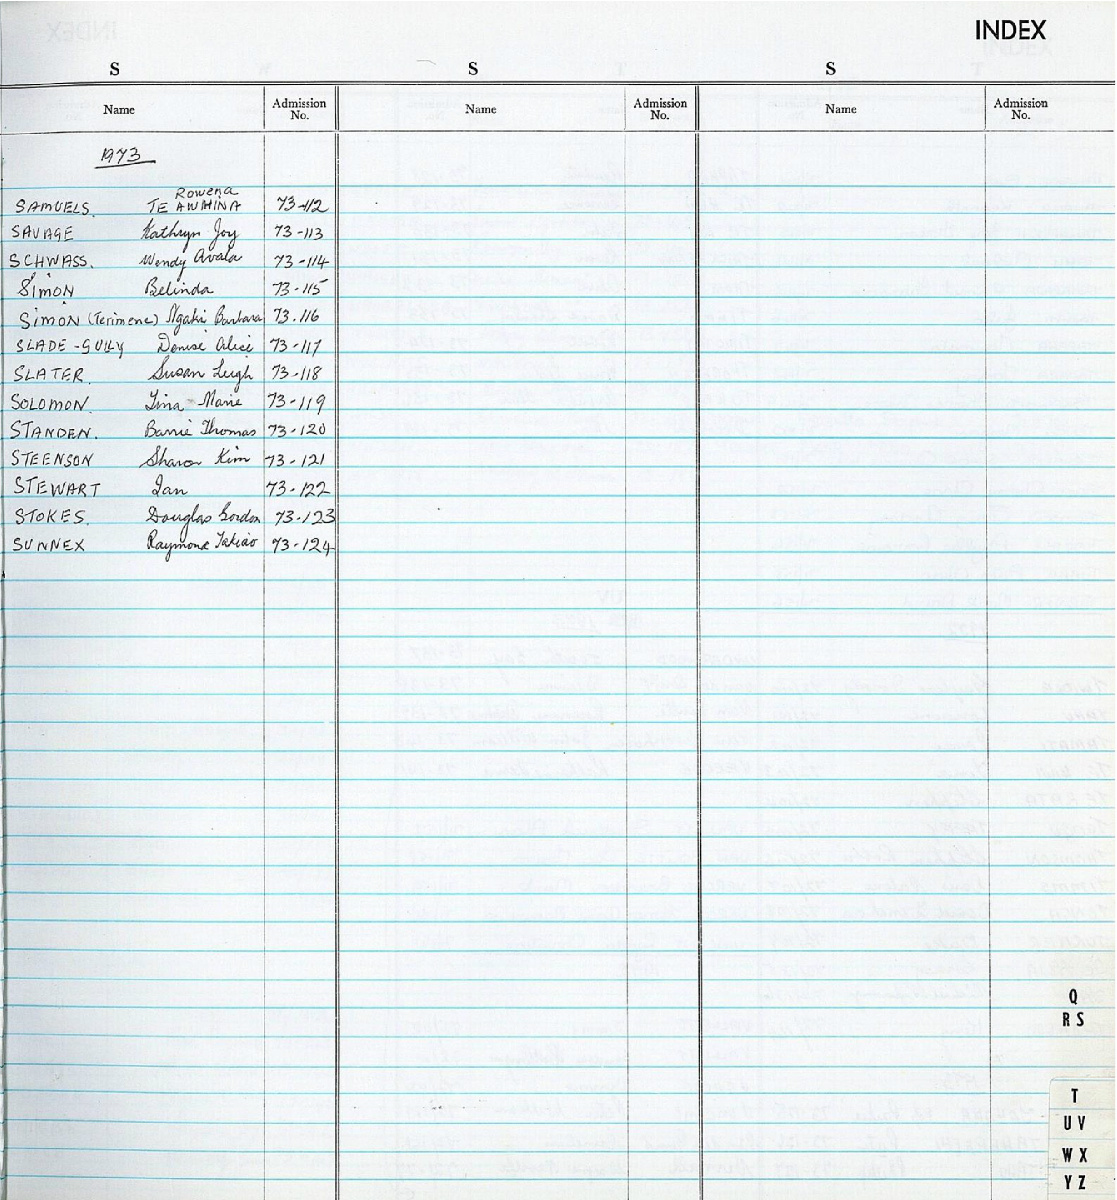 INDEX
S S S
Name Admission No. Name Admission No. Name Admission No.
1973
Rowena
SAMUELS. TE AWHINA 73-112
SAVAGE Kathryn Joy 73-113
SCHWASS. Wendy Avala 73-114
SIMON Belinda 73-115
SIMON (Terimene) Ngaki Barbara 73.116
SLADE-GULLY Denise Alice 73-117
SLATER. Susan Leigh 73-118
SOLOMON. Lina Marie 73-119
STANDEN. Barrie Thomas 73-120
STEENSON Sharon Kim 73-121
STEWART Ian 73-122
STOKES. Douglas Gordon 73-123
SUNNEX Raymond 73-124
Q
R S
T
U V
W X
Y Z